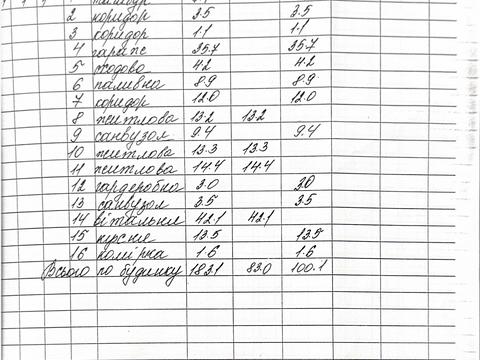 2 коридор 3.5 3.5
3 коридор 1.1 1.1
4 гараж 35.7 35.7
5 сходова 4.2 4.2
6 паливна 8.9 8.9
7 коридор 12.0 12.0
8 житлова 13.2 13.2
9 санвузол 9.4 9.4
10 житлова 13.3 13.3
11 житлова 14.4 14.4
12 гардеробна 3.0 3.0
13 санвузол 3.5 3.5
14 вітальня 42.1 42.1
15 кухня 13.5 13.5
16 комірка 1.6 1.6
Всього по будинку 183.1 83.0 100.1